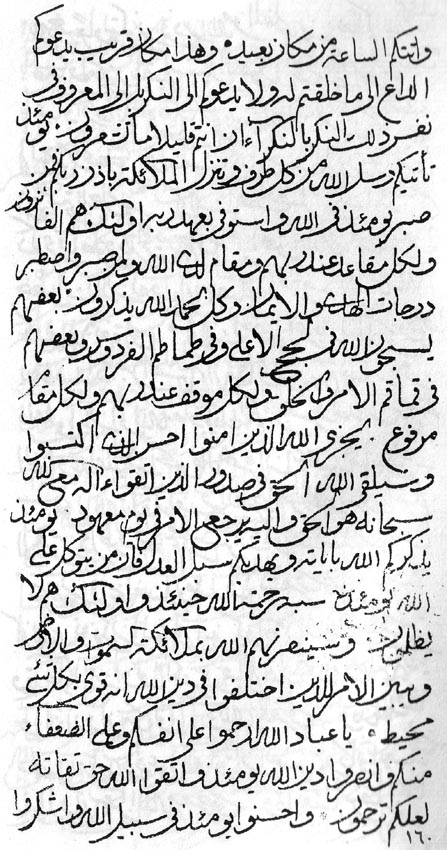 واتتكم الساعة من مكان بعيده وهذا مكان قريب يدعوكم
الداع الى ما خلقتم له ولا يدعوكم الى النكر بل الى المعروف فى
نفر ذلك النكر بالنكر آءان انتم قليلا ما تعرفون يومئذ
تأتيكم رسل الله من كل طرف وتنزل الملائكة باذن ربهم فمن
صبر يومئذ فى الله واستوفى بعهد ربه اولئك هم الفائزون
ولكل مقاعد عند ربهم ومقام لدى الله ولمن صبر واصطبر
درجات الهدى والايمان وكل بحمد الله يذكرون بعضهم
يسبحون الله فى لجج الاعلى وفى طماطم الفردوس وبعضهم
فى قماقم الامر والخلق ولكل موقف عند ربهم ولكل مقام
مرفوع ليجزى الله الذين امنوا احسن الذى اكتسبوا
وسيلقى الله الحق فى صدور الذين اتقوا اله معى الله
سبحانه هو الحق واليه يرجع الامر فى يوم معهود يومئذ
يذكركم الله باياته ويهديكم سبل العدل فمن يتوكل على
الله يومئذ رحمة الله حينئذ واولئك هم لا
يظلمون وسينصرنهم الله بملائكة السموات والارض
ويبين الامر للذين اختلفوا فى دين الله انه قوى بكل شئ
محيط يا عباد الله ارحموا على انفسكم وعلى الضعفاء
منكم وانصروا دين الله يومئذ واتقوا الله حق تقاته
لعلكم ترحمون واحسنوا يومئذ فى سبيل الله واشكروا
١٦٠